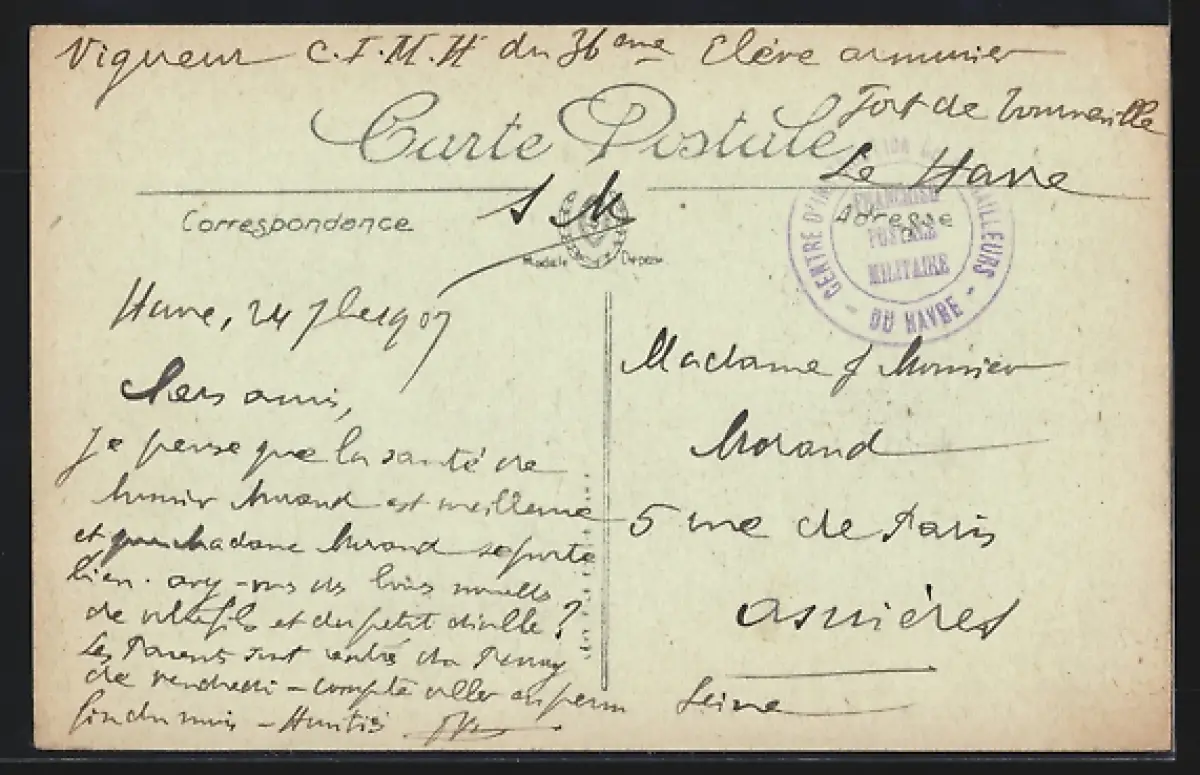 Vigueur C.I.M.H du 36eme Elève armurier
Fort de Tourneville
Le Havre
Carte Postale
S M
Correspondance
Adresse
Modèle Déposé
CENTRE D'IN MITRAILLEURS
- DU HAVRE -
FRANCHISE
POSTALE
MILITAIRE
Havre, 24 7bre
Chers amis,
Je pense que la santé de
Monsieur Morand est meilleure
et Madame Morand se porte
bien. avez-vous de bonnes nouvelles
de votre fils et du petit ?
Les Parents sont rentrés du
de vendredi - compte aller en perm
fin du mois -
Madame & Monsieur
Morand
5 rue de Paris
Asnières
Seine